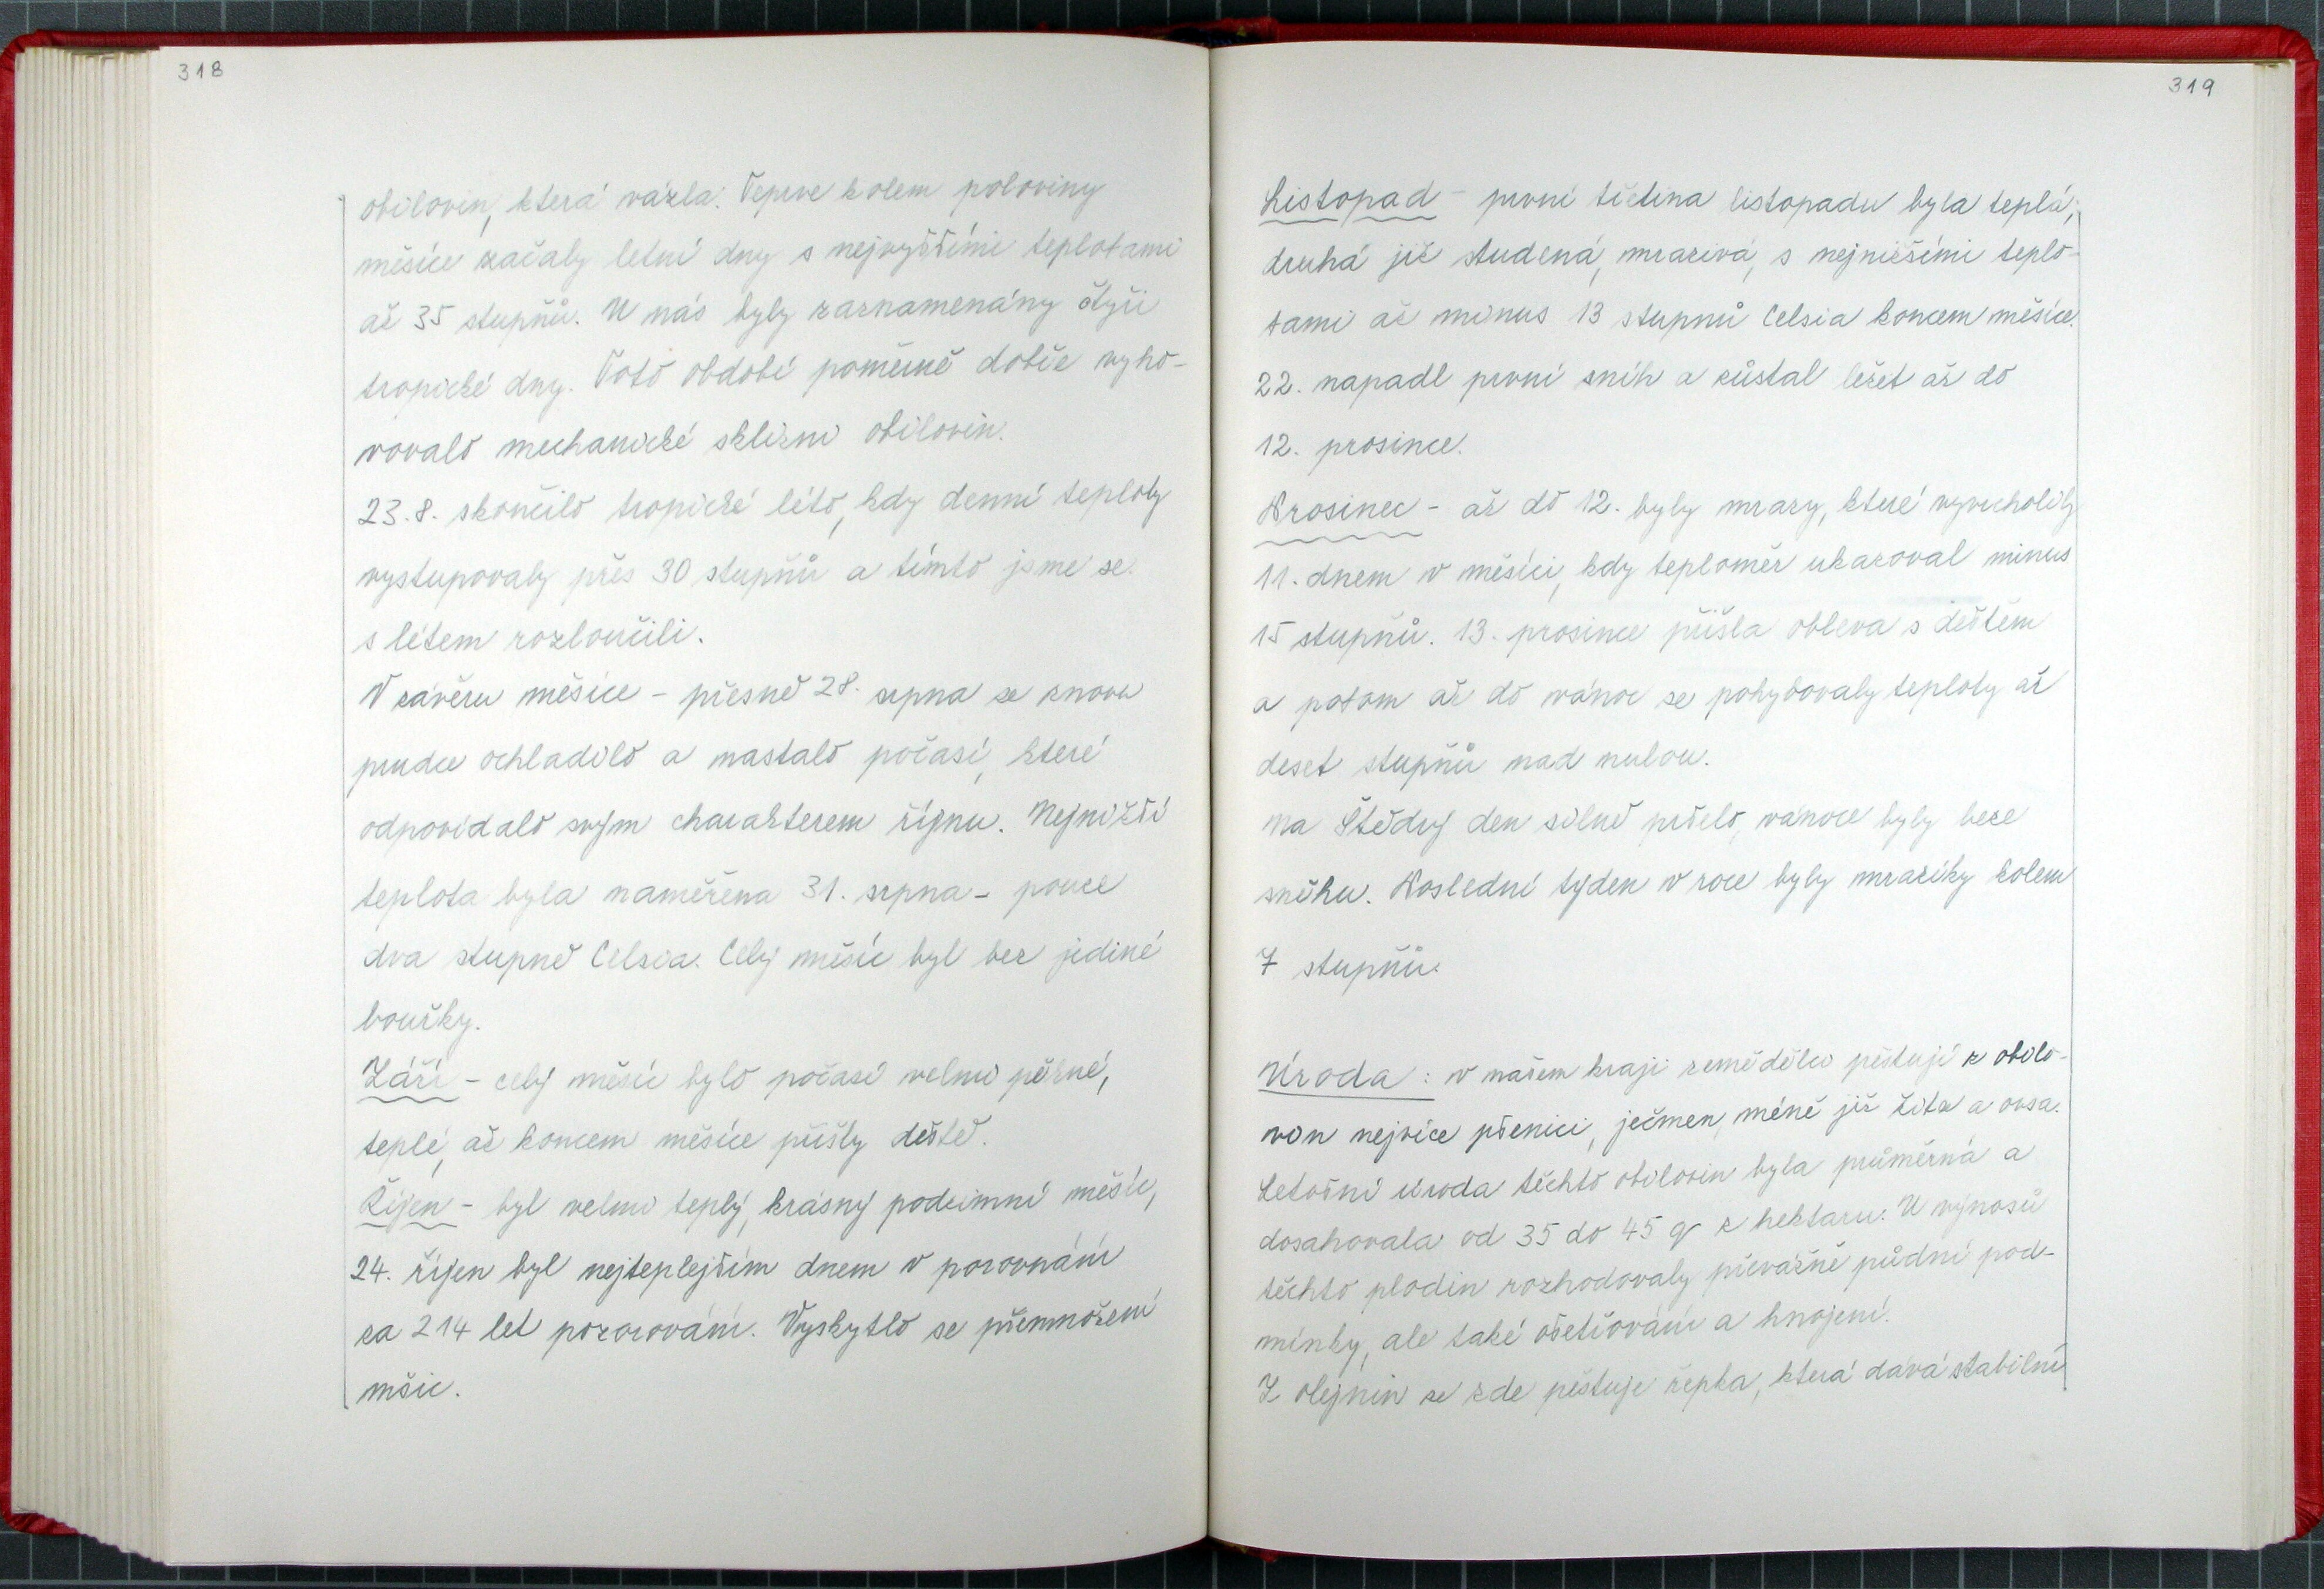 318
obilovin, která vázla. Teprve kolem poloviny
měsíce začaly letní dny s nejvyššími teplotami
až 35 stupňů. U nás byly zaznamenány čtyři
tropické dny. Toto období poměrně dobře vyho-
vovalo mechanické sklizni obilovin.
23.8. skončilo tropické léto, kdy denní teploty
vystupovaly přes 30 stupňů a tímto jsme se
s létem rozloučili.
V závěru měsíce - přesně 28. srpna se znovu
prudce ochladilo a nastalo počasí, které
odpovídalo svým charakterem říjnu. Nejnižší
teplota byla naměřena 31. srpna - pouze
dva stupně Celsia. Celý měsíc byl bez jediné
bouřky.
Září - celý měsíc bylo počasí velmi pěkné,
teplé, až koncem měsíce přišly deště.
Říjen - byl velmi teplý, krásný podzimní měsíc,
24. říjen byl nejteplejším dnem v porovnání
za 214 let pozorování. Vyskytlo se přemnožení
mšic.
319
Listopad - první třetina listopadu byla teplá;
druhá již studená, mrazivá, s nejnižšími teplo-
tami až minus 13 stupnů Celsia koncem měsíce.
22. napadl první sníh a zůstal ležet až do
12. prosince.
Prosinec - až do 12. byly mrazy, které vyvrcholily
11. dnem v měsíci, kdy teploměr ukazoval minus
15 stupňů. 13. prosince přišla obleva s deštěm
a potom až do vánoc se pohybovaly teploty až
deset stupňů nad nulou.
Na Štědrý den silně pršelo, vánoce byly beze
sněhu. Poslední týden v roce byly mrazíky kolem
7 stupňů.
Úroda: v našem kraji zemědělci pěstují z obilo-
vin nejvíce pšenici, ječmen, méně již žita a ovsa.
Letošní úroda těchto obilovin byla průměrná a
dosahovala od 35 do 45 q z hektaru. U výnosů
těchto plodin rozhodovaly převážně půdní pod-
mínky, ale také ošetřování a hnojení.
Z olejnin se zde pěstuje řepka, která dává stabilní